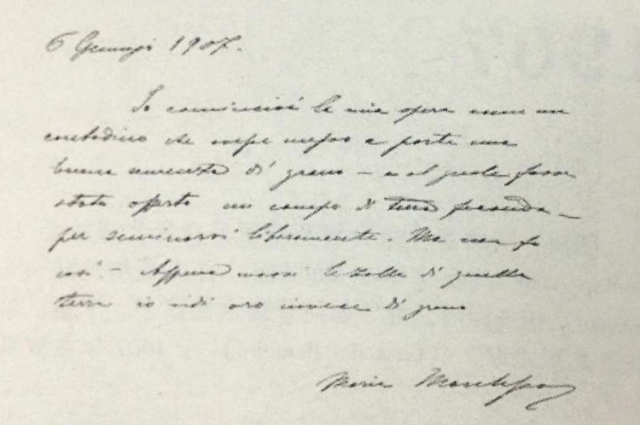 6 Gennajo 1907.
Io cominciai la mia opera come un
contadino che messo a parte una
buona semenza di grano – e al quale fosse
stato offerto un campo di terra feconda –
per seminarvi liberamente. Ma non fu
così – Appena mossi le zolle di quella
terra io vidi oro invece di grano
Maria Montessori